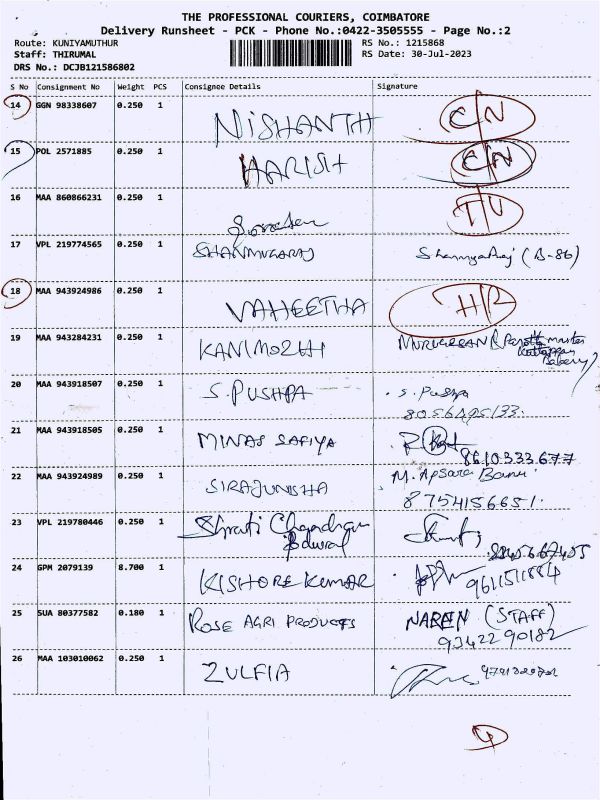 THE PROFESSIONAL COURIERS, COIMBATORE
Delivery Runsheet - PCK - Phone No.:0422-3505555 - Page No.:2
Route: KUNIYAMUTHUR RS No.: 1215868
Staff: THIRUMAL RS Date: 30-Jul-2023
DRS No.: DCJB121586802
S No Consignment No Weight PCS Consignee Details Signature
14 GGN 98338607 0.250 1 NISHANTH C/N
15 POL 2571885 0.250 1 HARISH C/N
16 MAA 860866231 0.250 1
17 VPL 219774565 0.250 1 SHANMUGARAJ (B-86)
18 MAA 943924986 0.250 1 VAHEETHA
19 MAA 943284231 0.250 1 KANIMOZHI MURUGESAN
20 MAA 943918507 0.250 1 S. PUSHPA S. Pushpa
8056495133
21 MAA 943918505 0.250 1 MINAS SAFIYA
8610333677
22 MAA 943924989 0.250 1 SIRAJUNISHA M. Apsara Banu
8754156651
23 VPL 219780446 0.250 1 Shruti Chandran
24 GPM 2079139 8.700 1 KISHORE KUMAR 9611511884
25 SUA 80377582 0.180 1 ROSE AGRI PRODUCTS NAREN (STAFF)
9342290182
26 MAA 103010062 0.250 1 ZULFIA